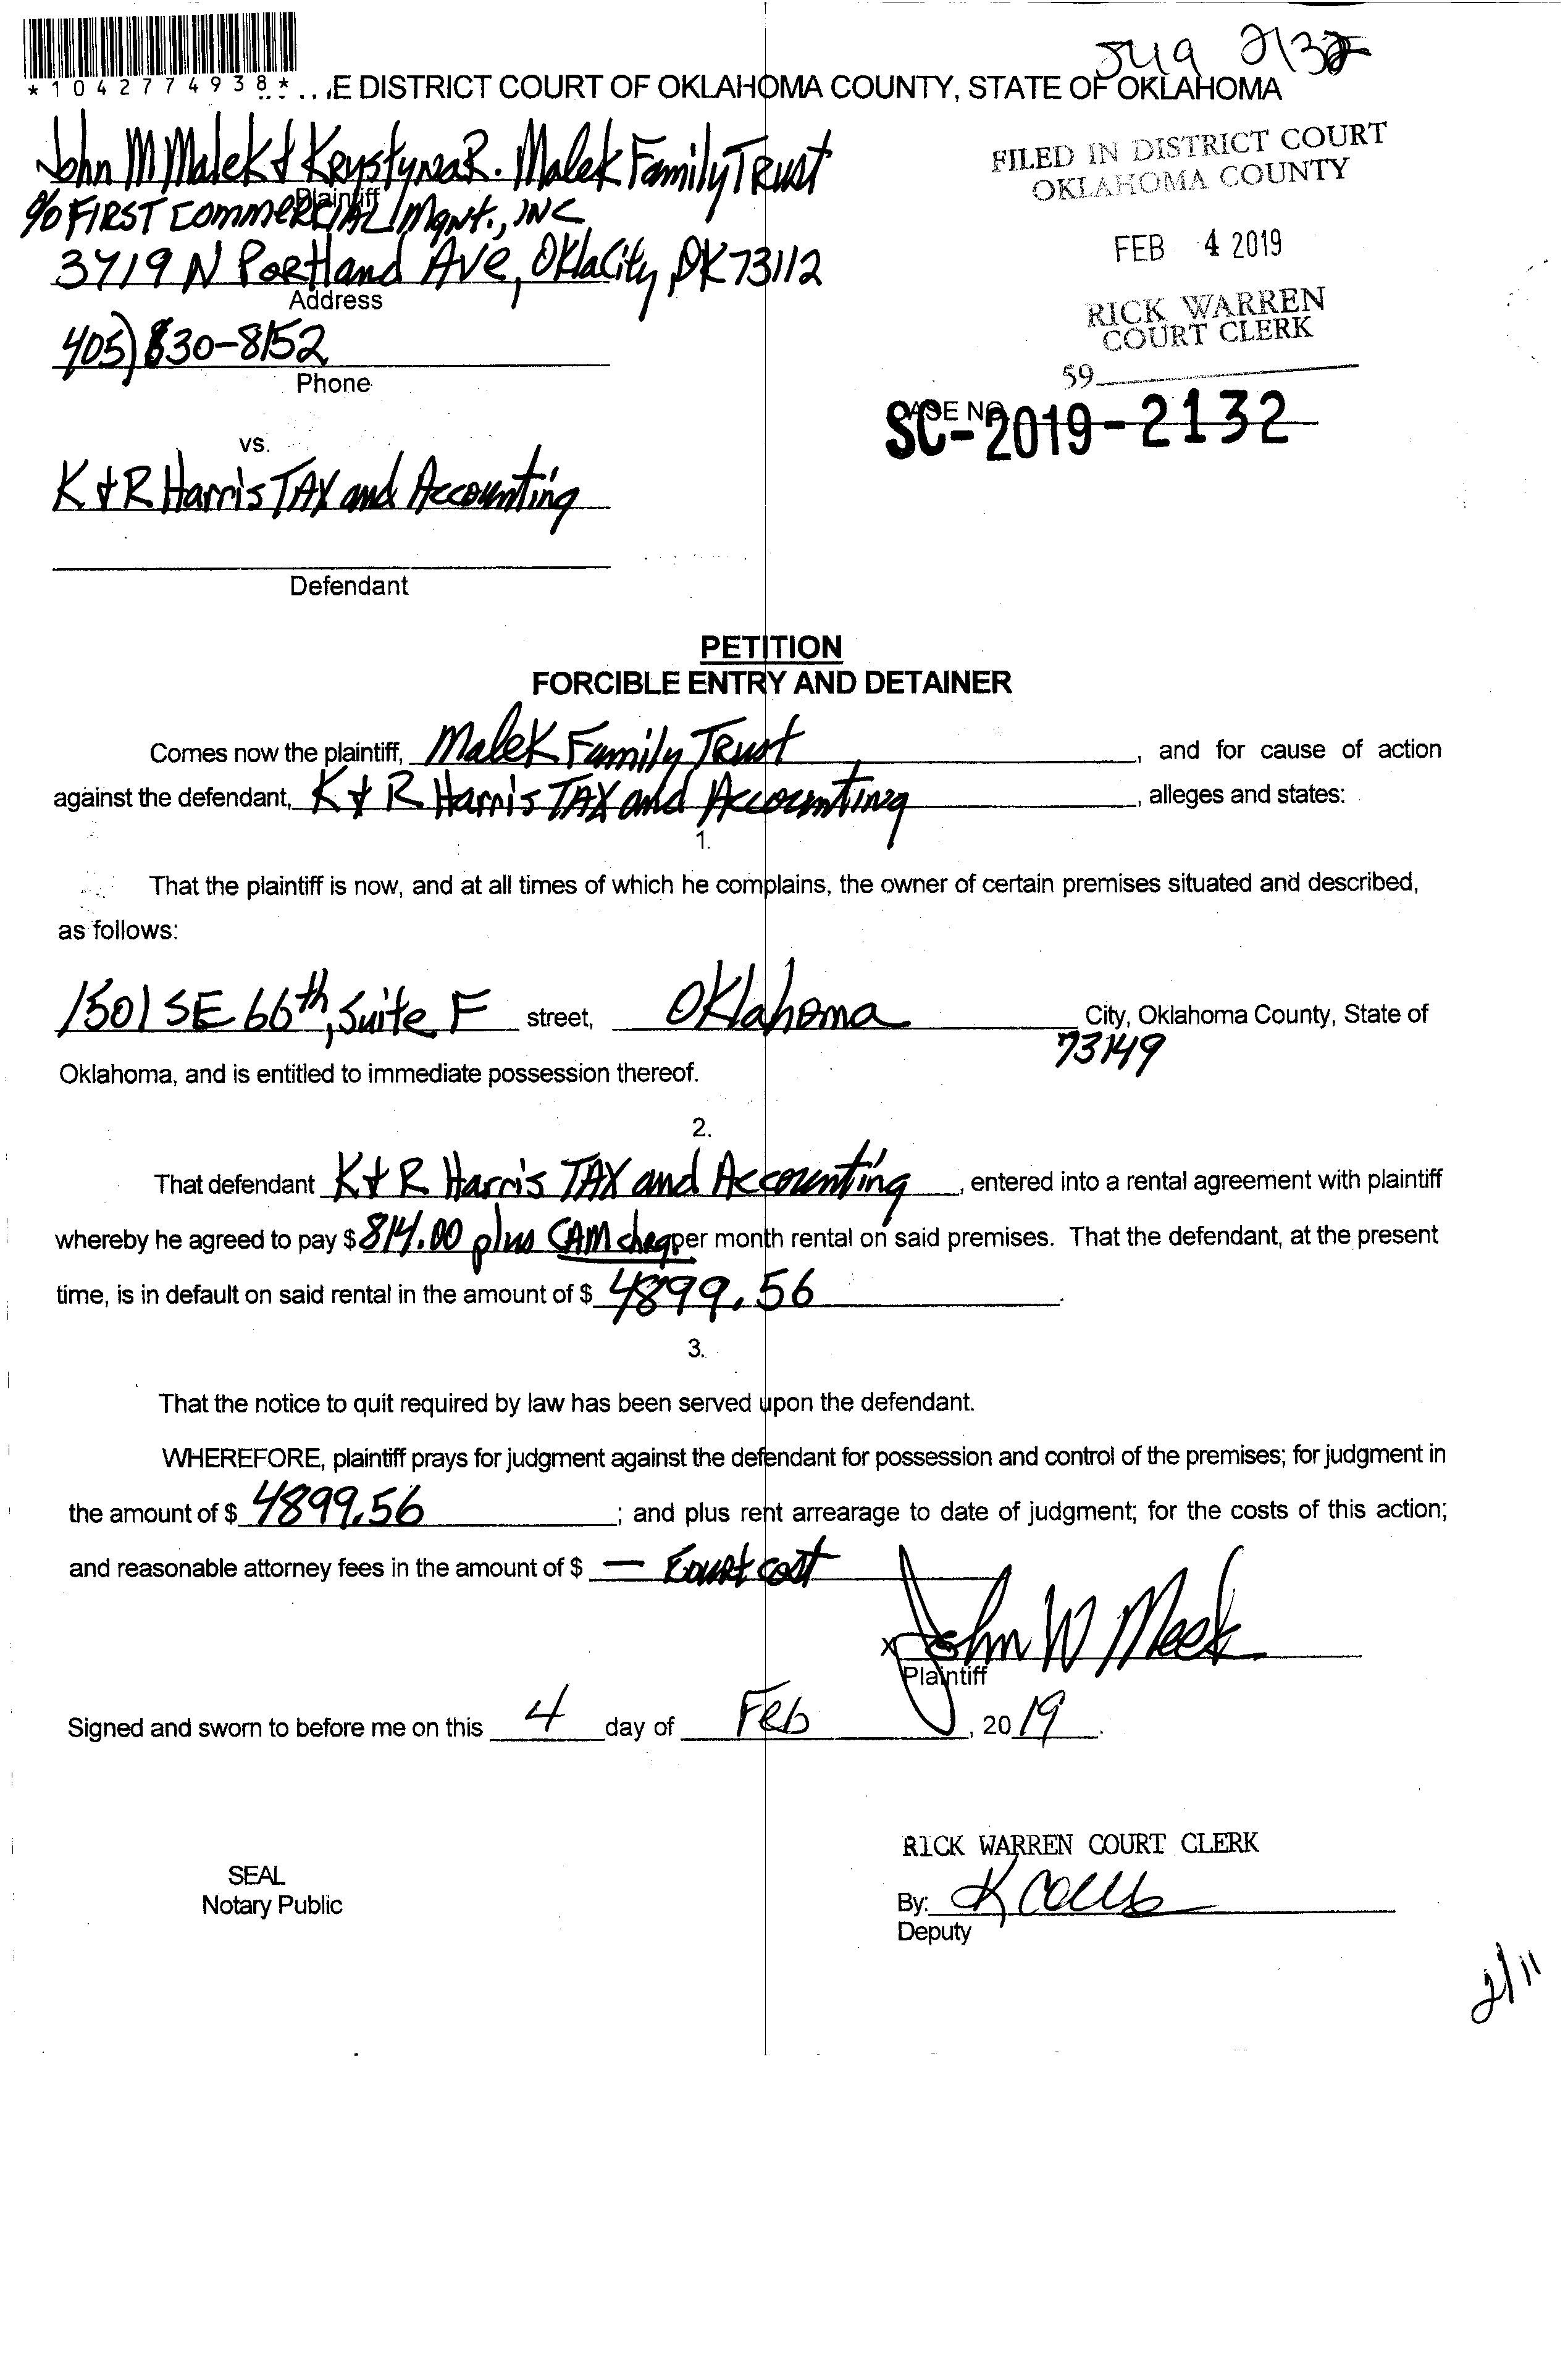 *1042774938*
519 2132
E DISTRICT COURT OF OKLAHOMA COUNTY, STATE OF OKLAHOMA
John M Malek & Krystyna R. Malek Family Trust
Plaintiff
% FIRST Commercial Mgnt., INC
3719 N Portland Ave, Okla City, OK 73112
Address
405) 830-8152
Phone
FILED IN DISTRICT COURT
OKLAHOMA COUNTY
FEB 4 2019
RICK WARREN
COURT CLERK
59
CASE NO.
SC-2019-2132
vs.
K & R Harris TAX and Accounting
Defendant
PETITION
FORCIBLE ENTRY AND DETAINER
Comes now the plaintiff, Malek Family Trust, and for cause of action
against the defendant, K & R Harris TAX and Accounting, alleges and states:
1.
That the plaintiff is now, and at all times of which he complains, the owner of certain premises situated and described,
as follows:
1501 SE 66th, Suite F street, Oklahoma City, Oklahoma County, State of
73149
Oklahoma, and is entitled to immediate possession thereof.
2.
That defendant K & R Harris TAX and Accounting, entered into a rental agreement with plaintiff
whereby he agreed to pay $ 814.00 plus CAM per month rental on said premises. That the defendant, at the present
time, is in default on said rental in the amount of $ 4899.56.
3.
That the notice to quit required by law has been served upon the defendant.
WHEREFORE, plaintiff prays for judgment against the defendant for possession and control of the premises; for judgment in
the amount of $ 4899.56; and plus rent arrearage to date of judgment; for the costs of this action;
and reasonable attorney fees in the amount of $ — Court cost
x John W Meek
Plaintiff
Signed and sworn to before me on this 4 day of Feb, 2019.
RICK WARREN COURT CLERK
SEAL
Notary Public
By: K
Deputy
2/11